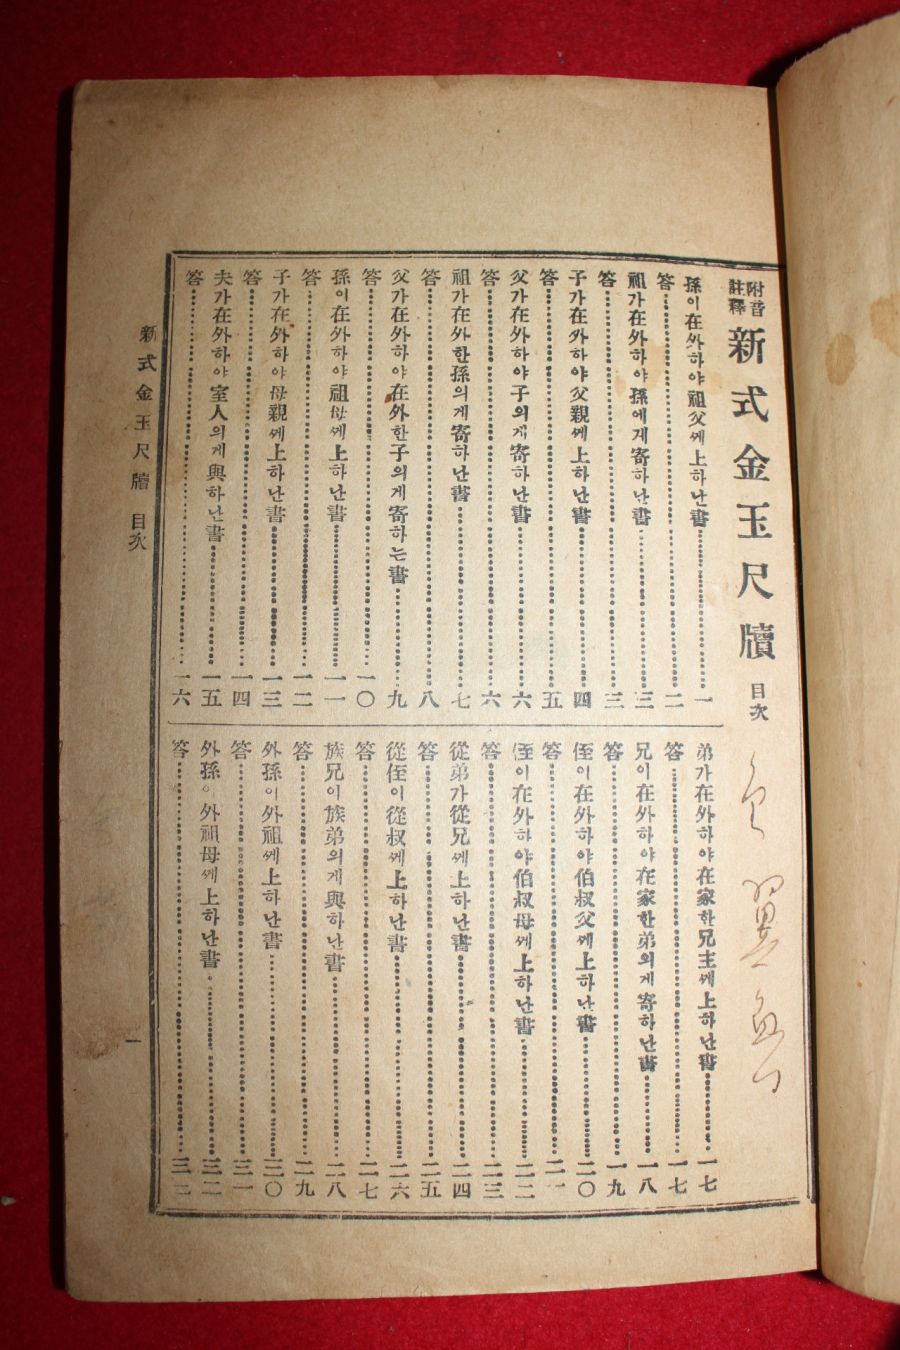 附音
註釋
新式金玉尺牘 目次
孫이在外하야祖父께上하난書 一
答 二
祖가在外하야孫에게寄하난書 三
答 三
子가在外하야父親께上하난書 四
答 五
父가在外하야子의게寄하난書 六
答 六
祖가在外한孫의게寄하난書 七
答 八
父가在外하야在外한子의게寄하는書 九
答 一〇
孫이在外하야祖母께上하난書 一一
答 一二
子가在外하야母親께上하난書 一三
答 一四
夫가在外하야室人의게與하난書 一五
答 一六
弟가在外하야在家한兄主께上하난書 一七
答 一七
兄이在外하야在家한弟의게寄하난書 一八
答 一九
侄이在外하야伯叔父께上하난書 二〇
答 二一
侄이在外하야伯叔母께上하난書 二二
答 二三
從弟가從兄께上하난書 二四
答 二五
從侄이從叔께上하난書 二六
答 二七
族兄이族弟의게與하난書 二八
答 二九
外孫이外祖께上하난書 三〇
答 三一
外孫이外祖母께上하난書 三二
答 三二
新式金玉尺牘 目次
一